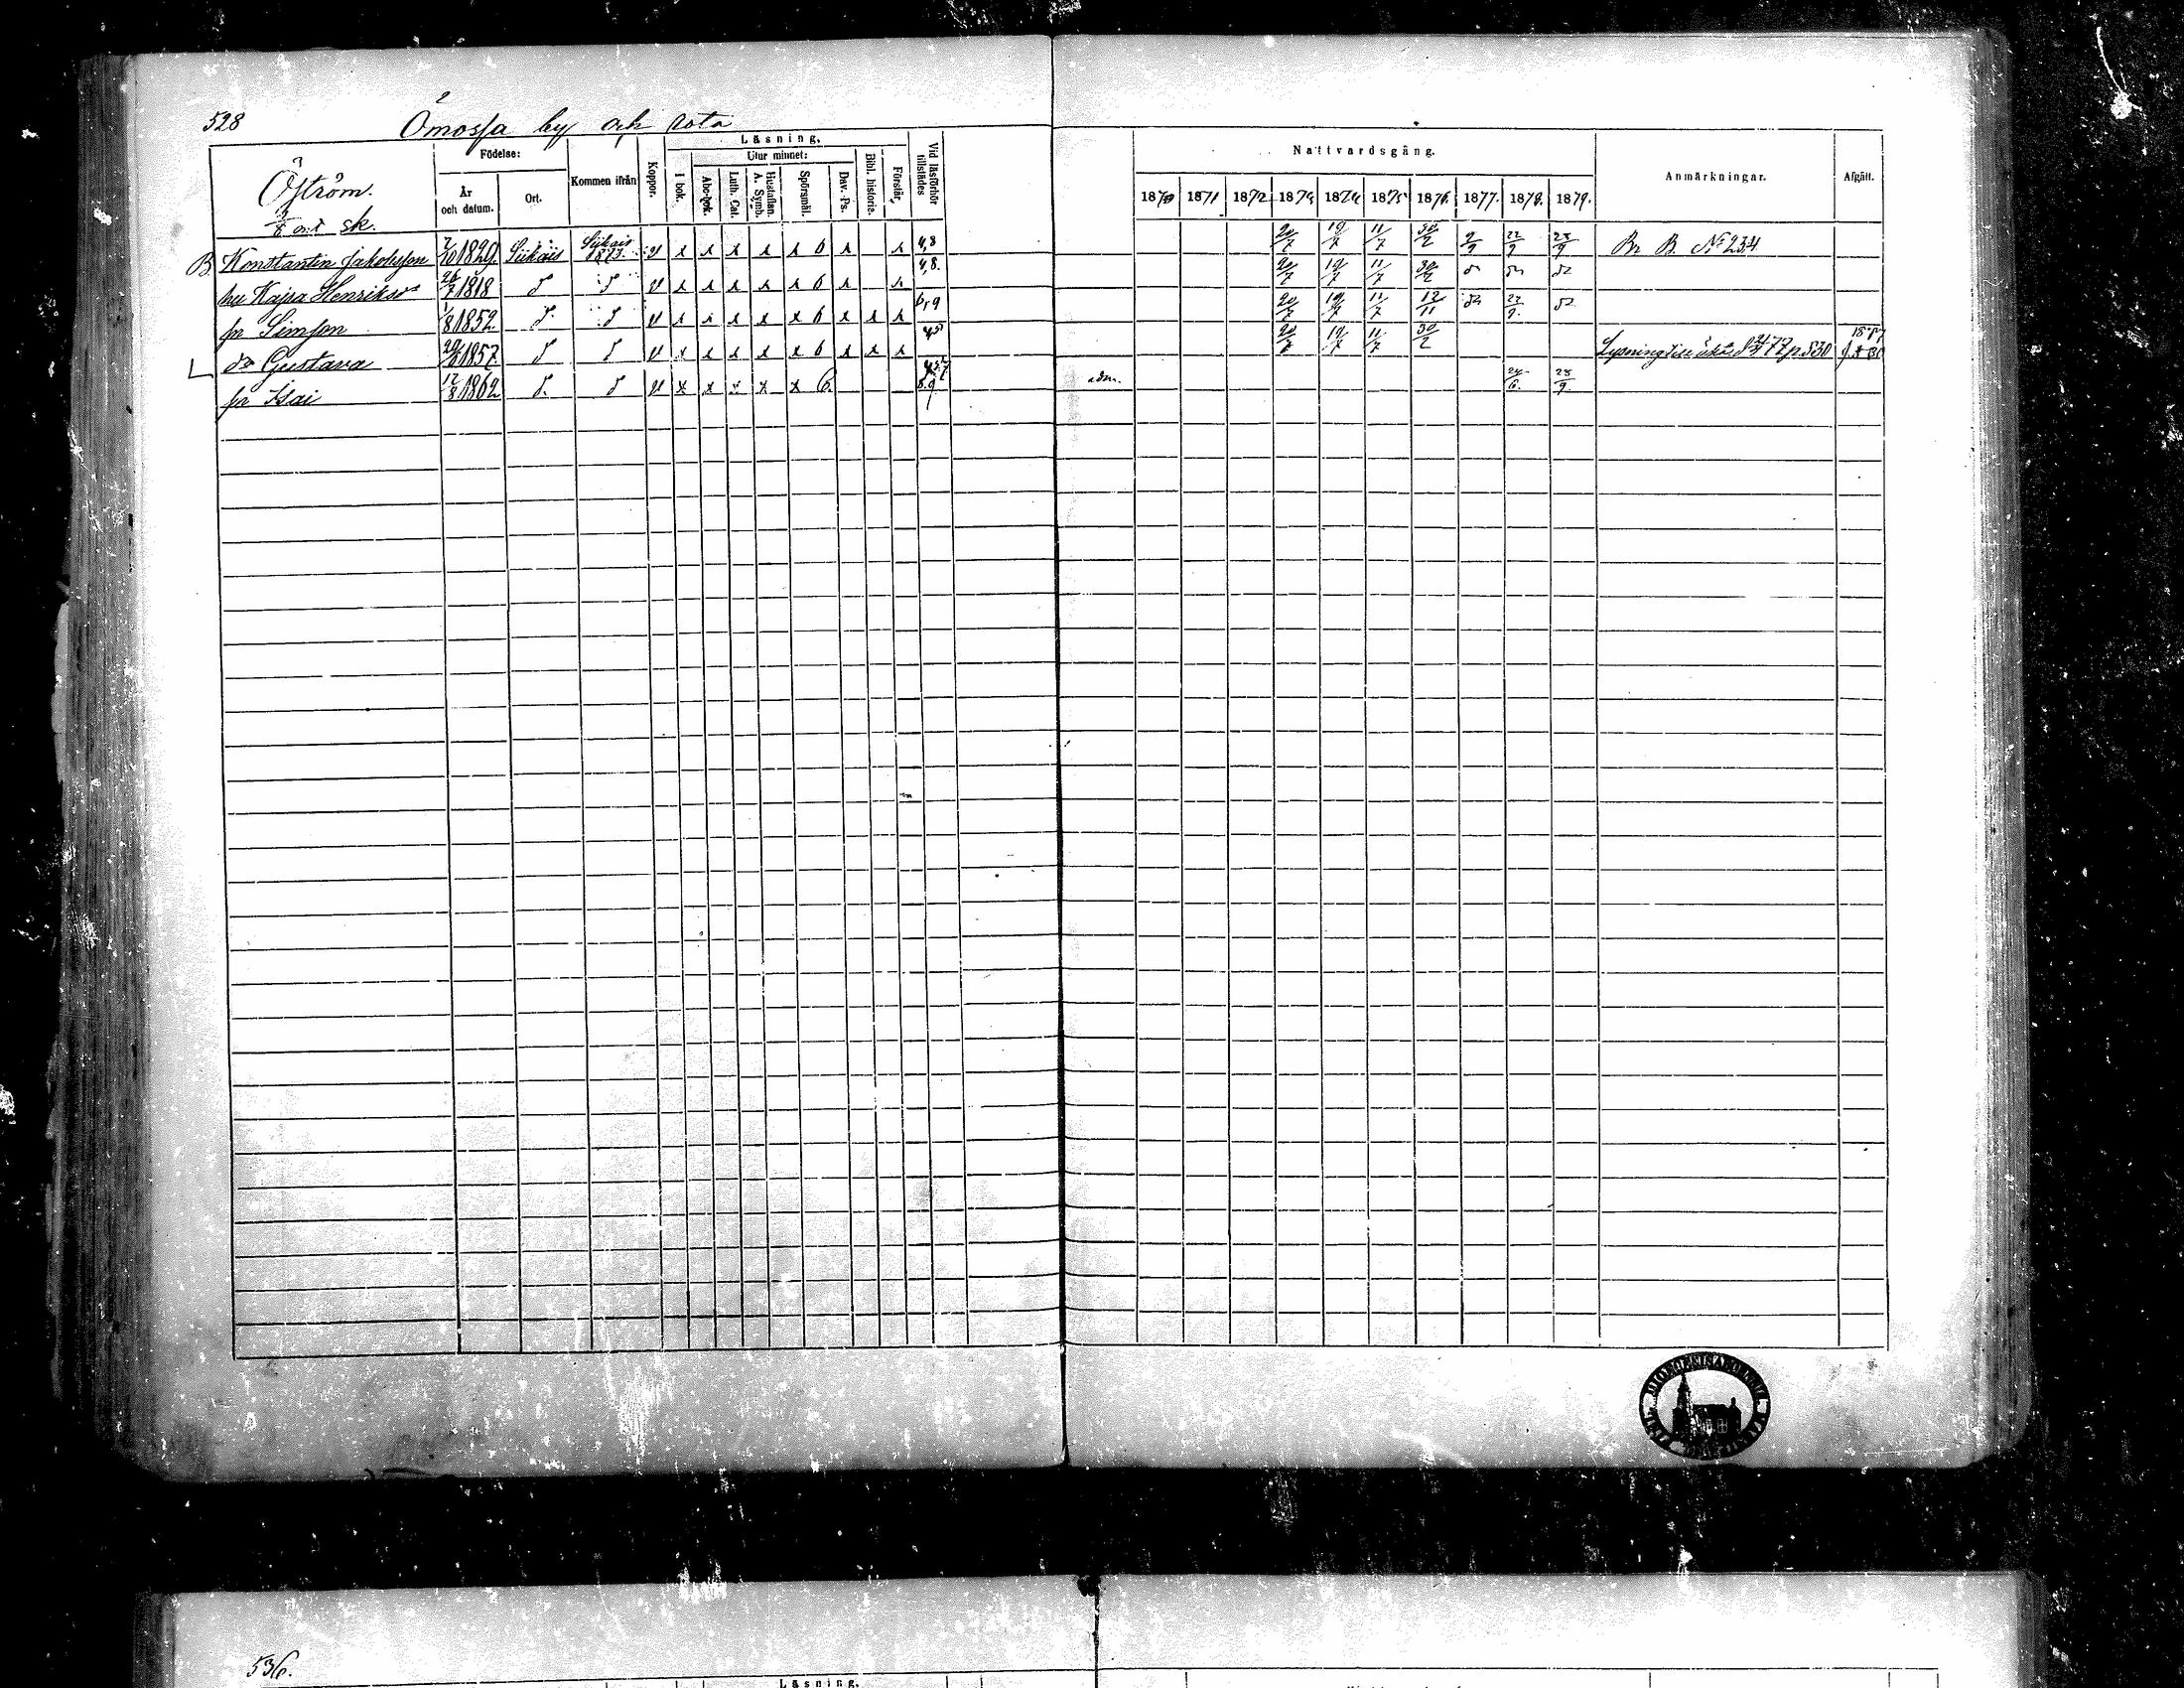 528
Ömossa by och rota
Öström.
sk.
Födelse:
År och datum.
Ort.
Kommen ifrån
Koppor.
Läsning.
I bok.
Utur minnet:
Abc-bok.
Luth. Cat.
Hustaflan. A. Symb.
Spörsmål.
Dav. Ps.
Bibl. historie.
Förstår
Vid läsförhör tillstädes
Nattvardsgång.
1870 1871 1872 1873 1874 1875 1876 1877. 1878. 1879.
Anmärkningar.
Afgått.
B Konstantin Jakobsson 7/10 1829 Siikais Siikais 1873. v x x x x x 6 x x 4,8 20/7 19/7 11/7 30/2 2/9 22/9 28/9 Br B. No 234
hu Kajsa Henriksdr 26/7 1818 v x x x x x 6 x x 4,8. 20/7 19/7 11/7 30/2 do do do
fr Simson 1/8 1852 v x x x x x 6 x x x 6,9 20/7 19/7 11/7 12/11 do 22/9. do
L do Gustava 1857 v x x x x x 6 x x x 4,5 20/7 19/7 11/7 30/2 Lysning till 77 p. 530
fr Isai 12/8 1862 v x x x x x 6. 8.9 adm. 24/6. 28/9.
536.
Läsning.